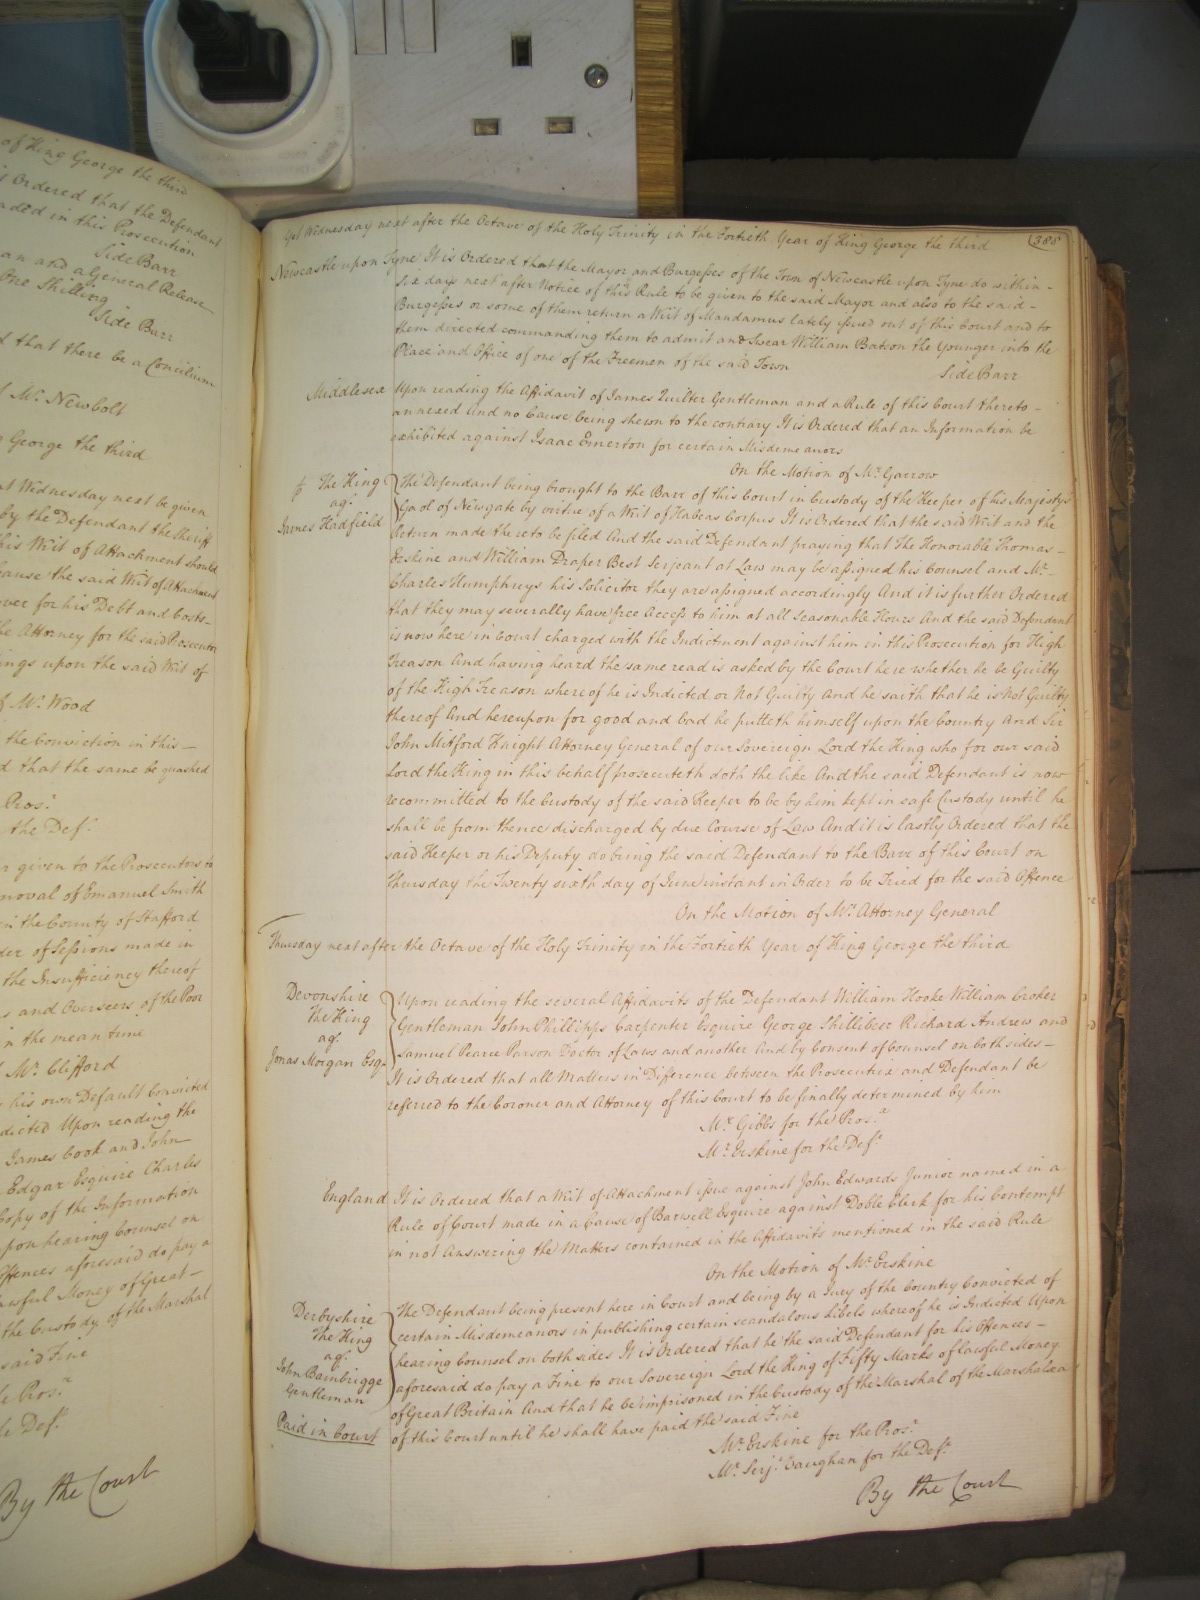 of King George the third
s Ordered that the Defendant
aded in this Prosecution
Side Barr
an and a General Release
One Shilling
Side Barr
d that there be a Concilium
f Mr. Newbolt
g George the third
at Wednesday next be given
by the Defendant the Sheriff
his Writ of Attachment should
cause the said Writ of Attachment
over for his Debt and Costs
he Attorney for the said Prosecutor
ings upon the said Writ of
f Mr. Wood
the Conviction in this
d that the same be quashed
Pros.r
the Def.t
n given to the Prosecutors to
moval of Emanuel Smith
in the County of Stafford
der of Sessions made in
the Insufficiency thereof
s and Overseers of the Poor
in the mean time
f Mr. Clifford
his own Default Convicted
dicted Upon reading the
James Cook and John
Edgar Esquire Charles
Copy of the Information
pon hearing Counsel on
Offences aforesaid do pay a
awful Money of Great
the Custody of the Marshal
said Fine
e Pros.r
e Def.t
By the Court
388
Yet Wednesday next after the Octave of the Holy Trinity in the Fortieth Year of King George the third
Newcastle upon Tyne It is Ordered that the Mayor and Burgesses of the Town of Newcastle upon Tyne do within
Six days next after Notice of this Rule to be given to the said Mayor and also to the said
Burgesses or some of them return a Writ of Mandamus lately issued out of this Court and to
them directed commanding them to admit and Swear William Batson the Younger into the
Place and Office of one of the Freemen of the said Town
Side Barr
Middlesex Upon reading the Affidavit of James Quilter Gentleman and a Rule of this Court thereto
annexed And no Cause being shewn to the contrary It is Ordered that an Information be
exhibited against Isaac Emerton for certain Misdemeanors
On the Motion of Mr. Garrow
The King
ag.t
James Hadfield
The Defendant being brought to the Barr of this Court in Custody of the Keeper of his Majestys
Gaol of Newgate by virtue of a Writ of Habeas Corpus It is Ordered that the said Writ and the
Return made thereto be filed And the said Defendant praying that The Honorable Thomas
Erskine and William Draper Best Serjeant at Law may be assigned his Counsel and Mr.
Charles Humphreys his Solicitor they are assigned accordingly And it is further Ordered
that they may severally have free Access to him at all seasonable Hours And the said Defendant
is now here in Court charged with the Indictment against him in this Prosecution for High
Treason And having heard the same read is asked by the Court here whether he be Guilty
of the High Treason whereof he is Indicted or Not Guilty And he saith that he is Not Guilty
thereof And hereupon for good and bad he putteth himself upon the Country And Sir
John Mitford Knight Attorney General of our Sovereign Lord the King who for our said
Lord the King in this behalf prosecuteth doth the like And the said Defendant is now
recommitted to the Custody of the said Keeper to be by him kept in safe Custody until he
shall be from thence discharged by due Course of Law And it is lastly Ordered that the
said Keeper or his Deputy do bring the said Defendant to the Barr of this Court on
Thursday the Twenty sixth day of June instant in Order to be Tried for the said Offence
On the Motion of Mr. Attorney General
Thursday next after the Octave of the Holy Trinity in the Fortieth Year of King George the third
Devonshire
The King
ag.t
Jonas Morgan Esq.r
Upon reading the several Affidavits of the Defendant William Hooke William Croker
Gentleman John Phillipps Carpenter Esquire George Shillibeer Richard Andrew and
Samuel Pearce Parson Doctor of Laws and another And by Consent of Counsel on both sides
It is Ordered that all Matters in Difference between the Prosecutrix and Defendant be
referred to the Coroner and Attorney of this Court to be finally determined by him
Mr. Gibbs for the Pros.x
Mr. Erskine for the Def.t
England It is Ordered that a Writ of Attachment issue against John Edwards Junior named in a
Rule of Court made in a Cause of Barwell Esquire against Doble Clerk for his Contempt
in not Answering the Matters contained in the Affidavits mentioned in the said Rule
On the Motion of Mr. Erskine
Derbyshire
The King
ag.t
John Bainbrigge
Gentleman
Paid in Court
The Defendant being present here in Court and being by a Jury of the Country Convicted of
certain Misdemeanors in publishing certain scandalous Libels whereof he is Indicted Upon
hearing Counsel on both sides It is Ordered that he the said Defendant for his Offences
aforesaid do pay a Fine to our Sovereign Lord the King of Fifty Marks of lawful Money
of Great Britain And that he be imprisoned in the Custody of the Marshal of the Marshalsea
of this Court until he shall have paid the said Fine
Mr. Erskine for the Pros.r
Mr. Serj.t Vaughan for the Def.t
By the Court